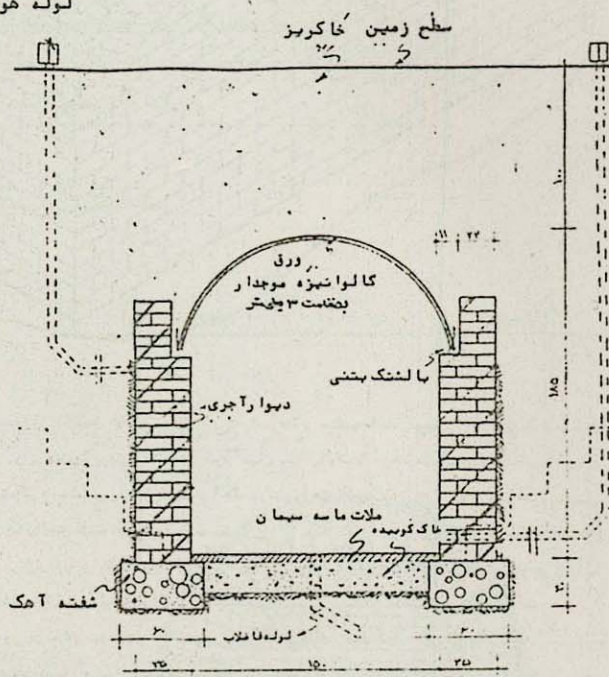 لوله هو
سطح زمین خاکریز
۱۰۰
۱۱
۲۴
ورق
گالوانیزه موجدار
بضخامت ۳ میلیمتر
بالشتک بتنی
دیوار آجری
۱۸۵
ملات ماسه سیمان
خاک کوبیده
شفته آهک
۳۰
لوله فاضلاب
۶۰
۳۵
۱۵۰
۳۵